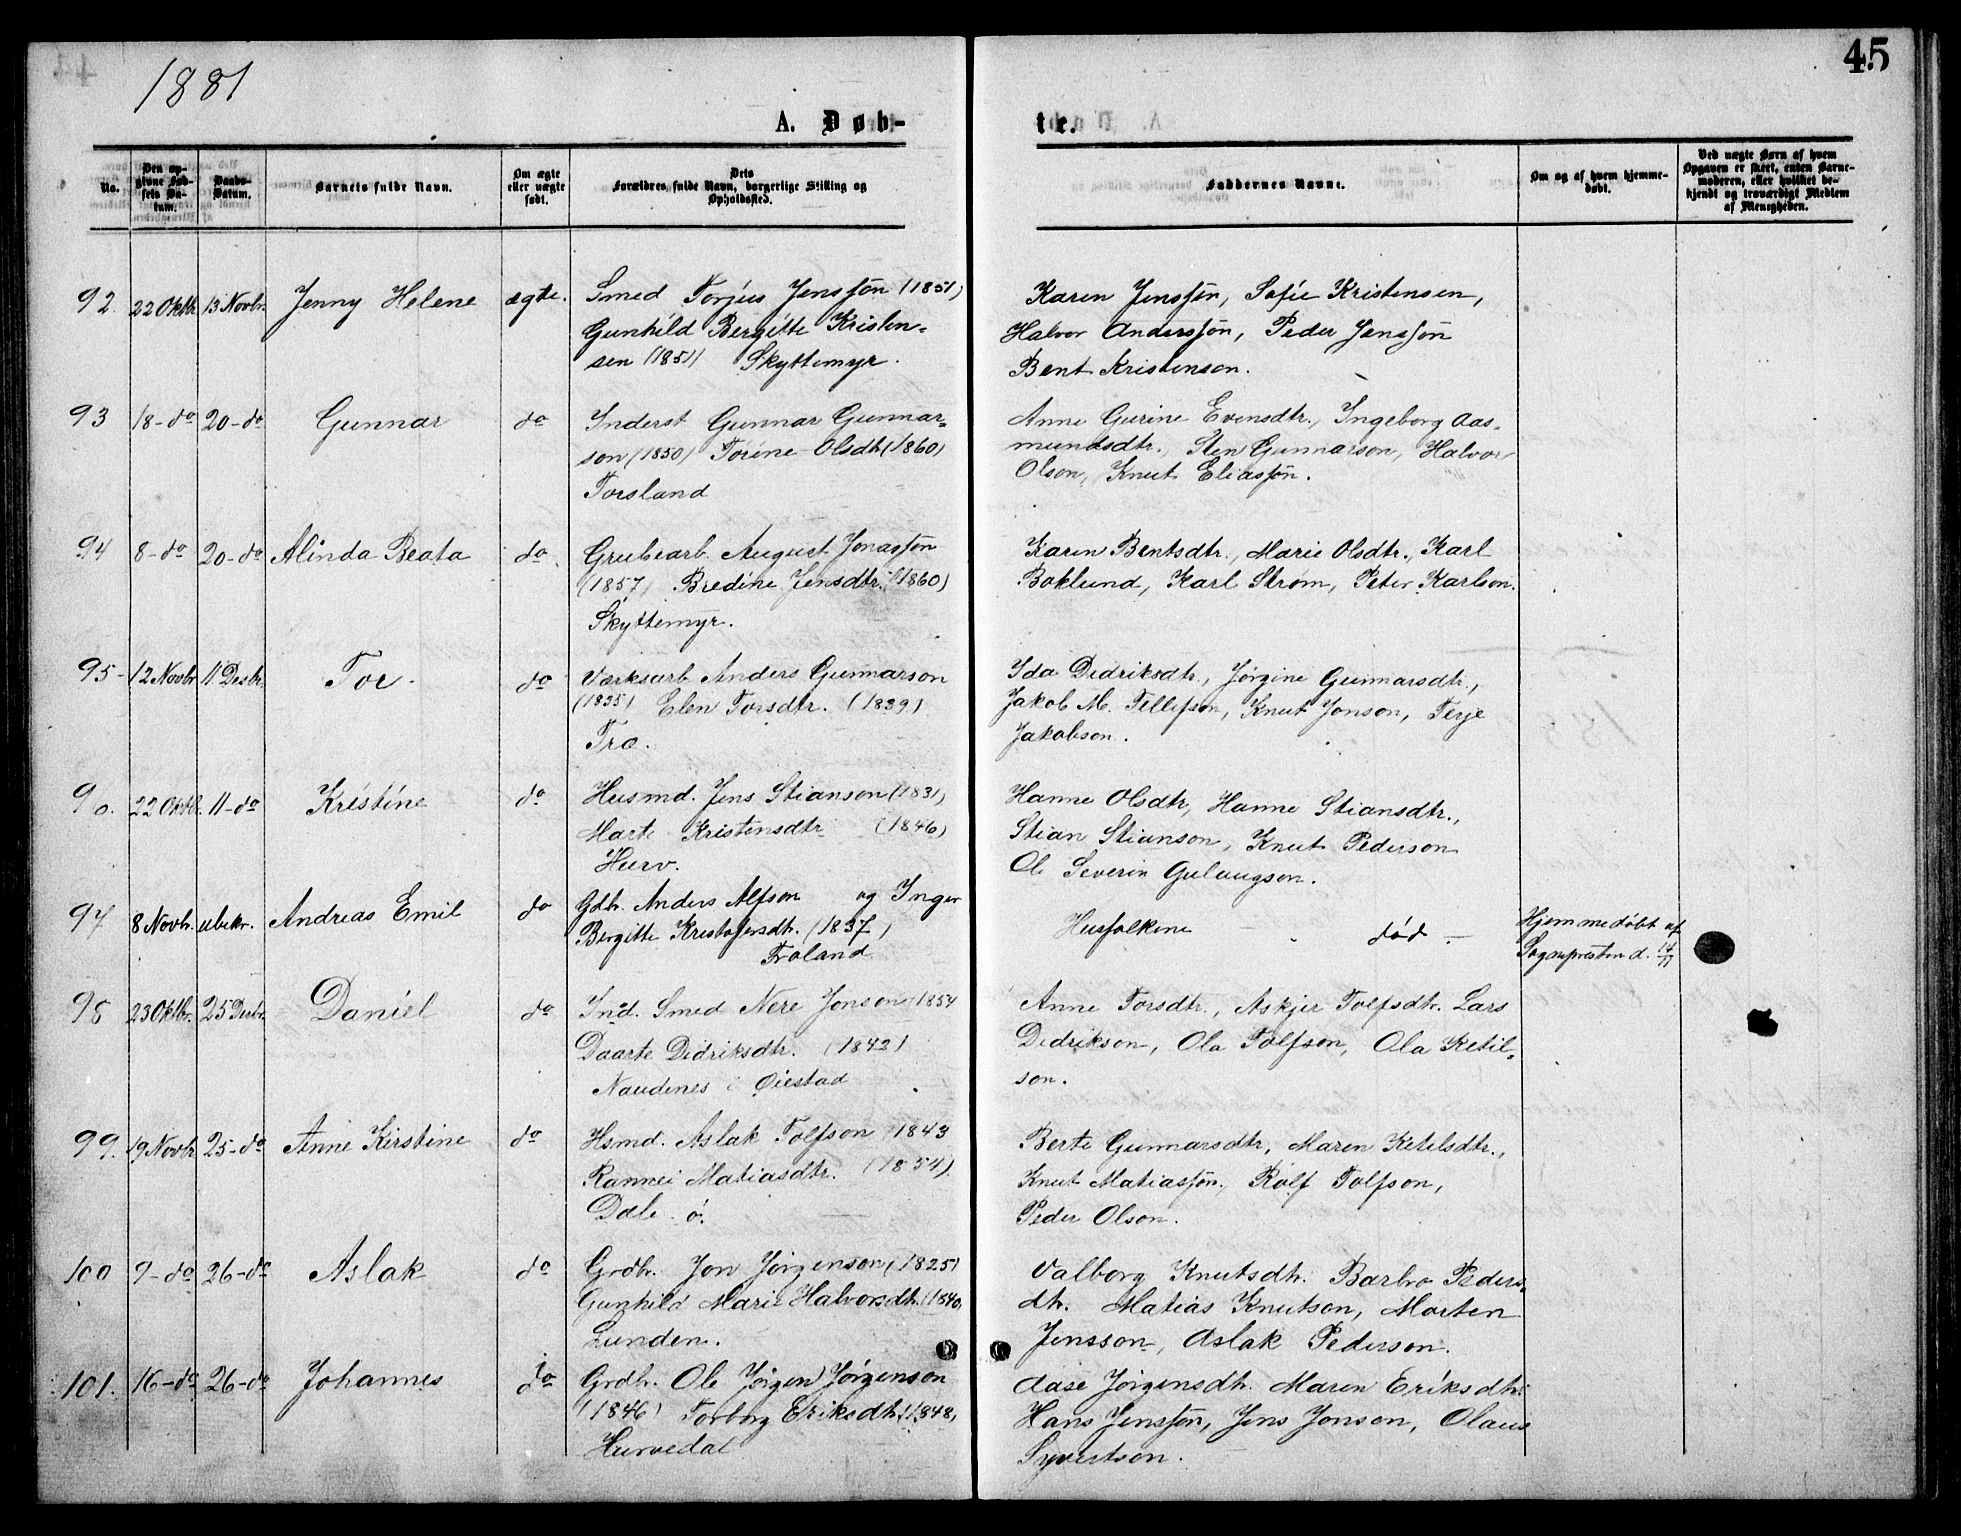 1881
45
A. Døb-
te.
No.
Den op-
givne Fød-
sels Da-
tum.
Daabs-
Datum.
Barnets fulde Navn.
Om ægte
eller uægte
født.
Dets
Forældres fulde Navn, borgerlige Stilling og
Opholdssted.
Faddernes Navne.
Om og af hvem hjemme-
døbt.
Ved uægte Børn af hvem
Opgaven er skeet, enten Barne-
moderen, eller hvilket be-
kjendt og troværdigt Medlem
af Menigheden.
92. 22 Oktbr. 13 Novbr. Jenny Helene ægte. Smed Torjus Jensjön (1851)
Gunhild Bergitte Kristen-
sen (1851) Skyttemyr.
Karen Jensjön, Sofie Kristensen,
Halvor Andersjön, Peder Jensjön
Bent Kristenson.
93 18-do 20-do Gunnar do Inderst Gunnar Gunnar-
son (1850) Torine Olsdtr (1860)
Torsland
Anne Gurine Evensdtr., Ingeborg Aas-
mundsdtr., Sten Gunnarson, Halvor
Olson, Knut Eliasjön.
94 8-do 20-do Alinda Beata do. Grubearb. August Jonasjön
(1857) Bredine Jensdtr. (1860)
Skyttemyr.
Karen Bentsdtr., Marie Olsdtr., Karl
Boklund, Karl Strøm, Peter Karlson.
95- 12 Novbr 11 Desbr. Tor. do Værksarb. Anders Gunnarson
(1835) Elen Torsdtr. (1839)
Tro.
Ida Dedriksdtr., Jørgine Gunnarsdtr.,
Jakob M. Tellefson, Knut Jonson, Terje
Jakobson.
96. 22 Oktb. 11-do Kristine do Husmd. Jens Stianson (1831)
Marte Kristensdtr (1846)
Hurv.
Hanne Olsdtr, Hanne Stiansdtr.,
Stian Stianson, Knut Pederson
Ole Severin Gulaugson.
97 8 Novbr. ubekr. Andreas Emil do Gdbr. Anders Alfson og Inger
Birgitte Kristofersdtr. (1837)
Froland
Husfolkene død.
Hjemmedøbt af
Sognepresten d. 14/11
98 23 Oktbr. 25 Desbr. Daniel do Ind. Smed Nere Jonson (1854
Daarte Didriksdtr. (1842)
Naudenes i Øiestad
Anne Torsdtr., Askjer Tolfsdtr. Lars
Didrikson, Ola Tolfson, Ola Ketil-
son.
99. 19 Novbr. 25-do Anne Kirstine do Hsmd. Aslak Tolfson (1843
Rannei Matiasdtr. (1854).
Dale ö.
Berte Gunnarsdtr, Maren Ketilsdtr.,
Knut Matiasjön, Rolf Tolfson,
Peder Olson.
100 9-do 26-do Aslak do Grdbr. Jon Jörgenson (1825)
Gunhild Marie Halvorsdtr. (1840,
Lunden.
Valborg Knutsdtr. Barbro Peders-
dtr. Matias Knutson, Morten
Jensson, Aslak Pederson.
101. 16-do 26-do Johannes do Grdbr. Ole Jörgen Jörgenson
(1846) Torborg Eriksdtr. (1848,
Hurvedal
Aase Jörgensdtr. Maren Eriksdtr.
Hans Jensjön, Jens Jonson, Olaus
Syvertson.